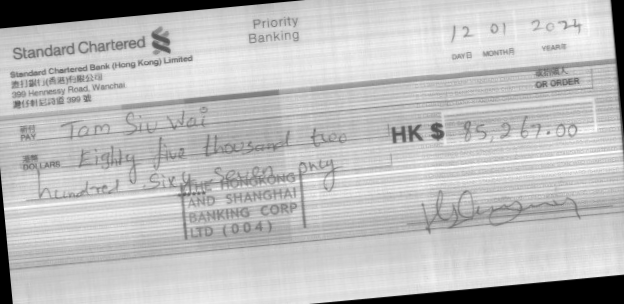 Standard Chartered
Priority
Banking
12 01 2024
DAY日 MONTH月 YEAR年
Standard Chartered Bank (Hong Kong) Limited
渣打銀行(香港)有限公司
399 Hennessy Road, Wanchai
灣仔軒尼詩道 399 號
或持票人
OR ORDER
祈付
PAY Tam Siu Wai
港幣
DOLLARS Eighty five thousand two
HK $ 85,267.00
hundred Sixy seven only
THE HONGKONG
AND SHANGHAI
BANKING CORP
LTD (004)